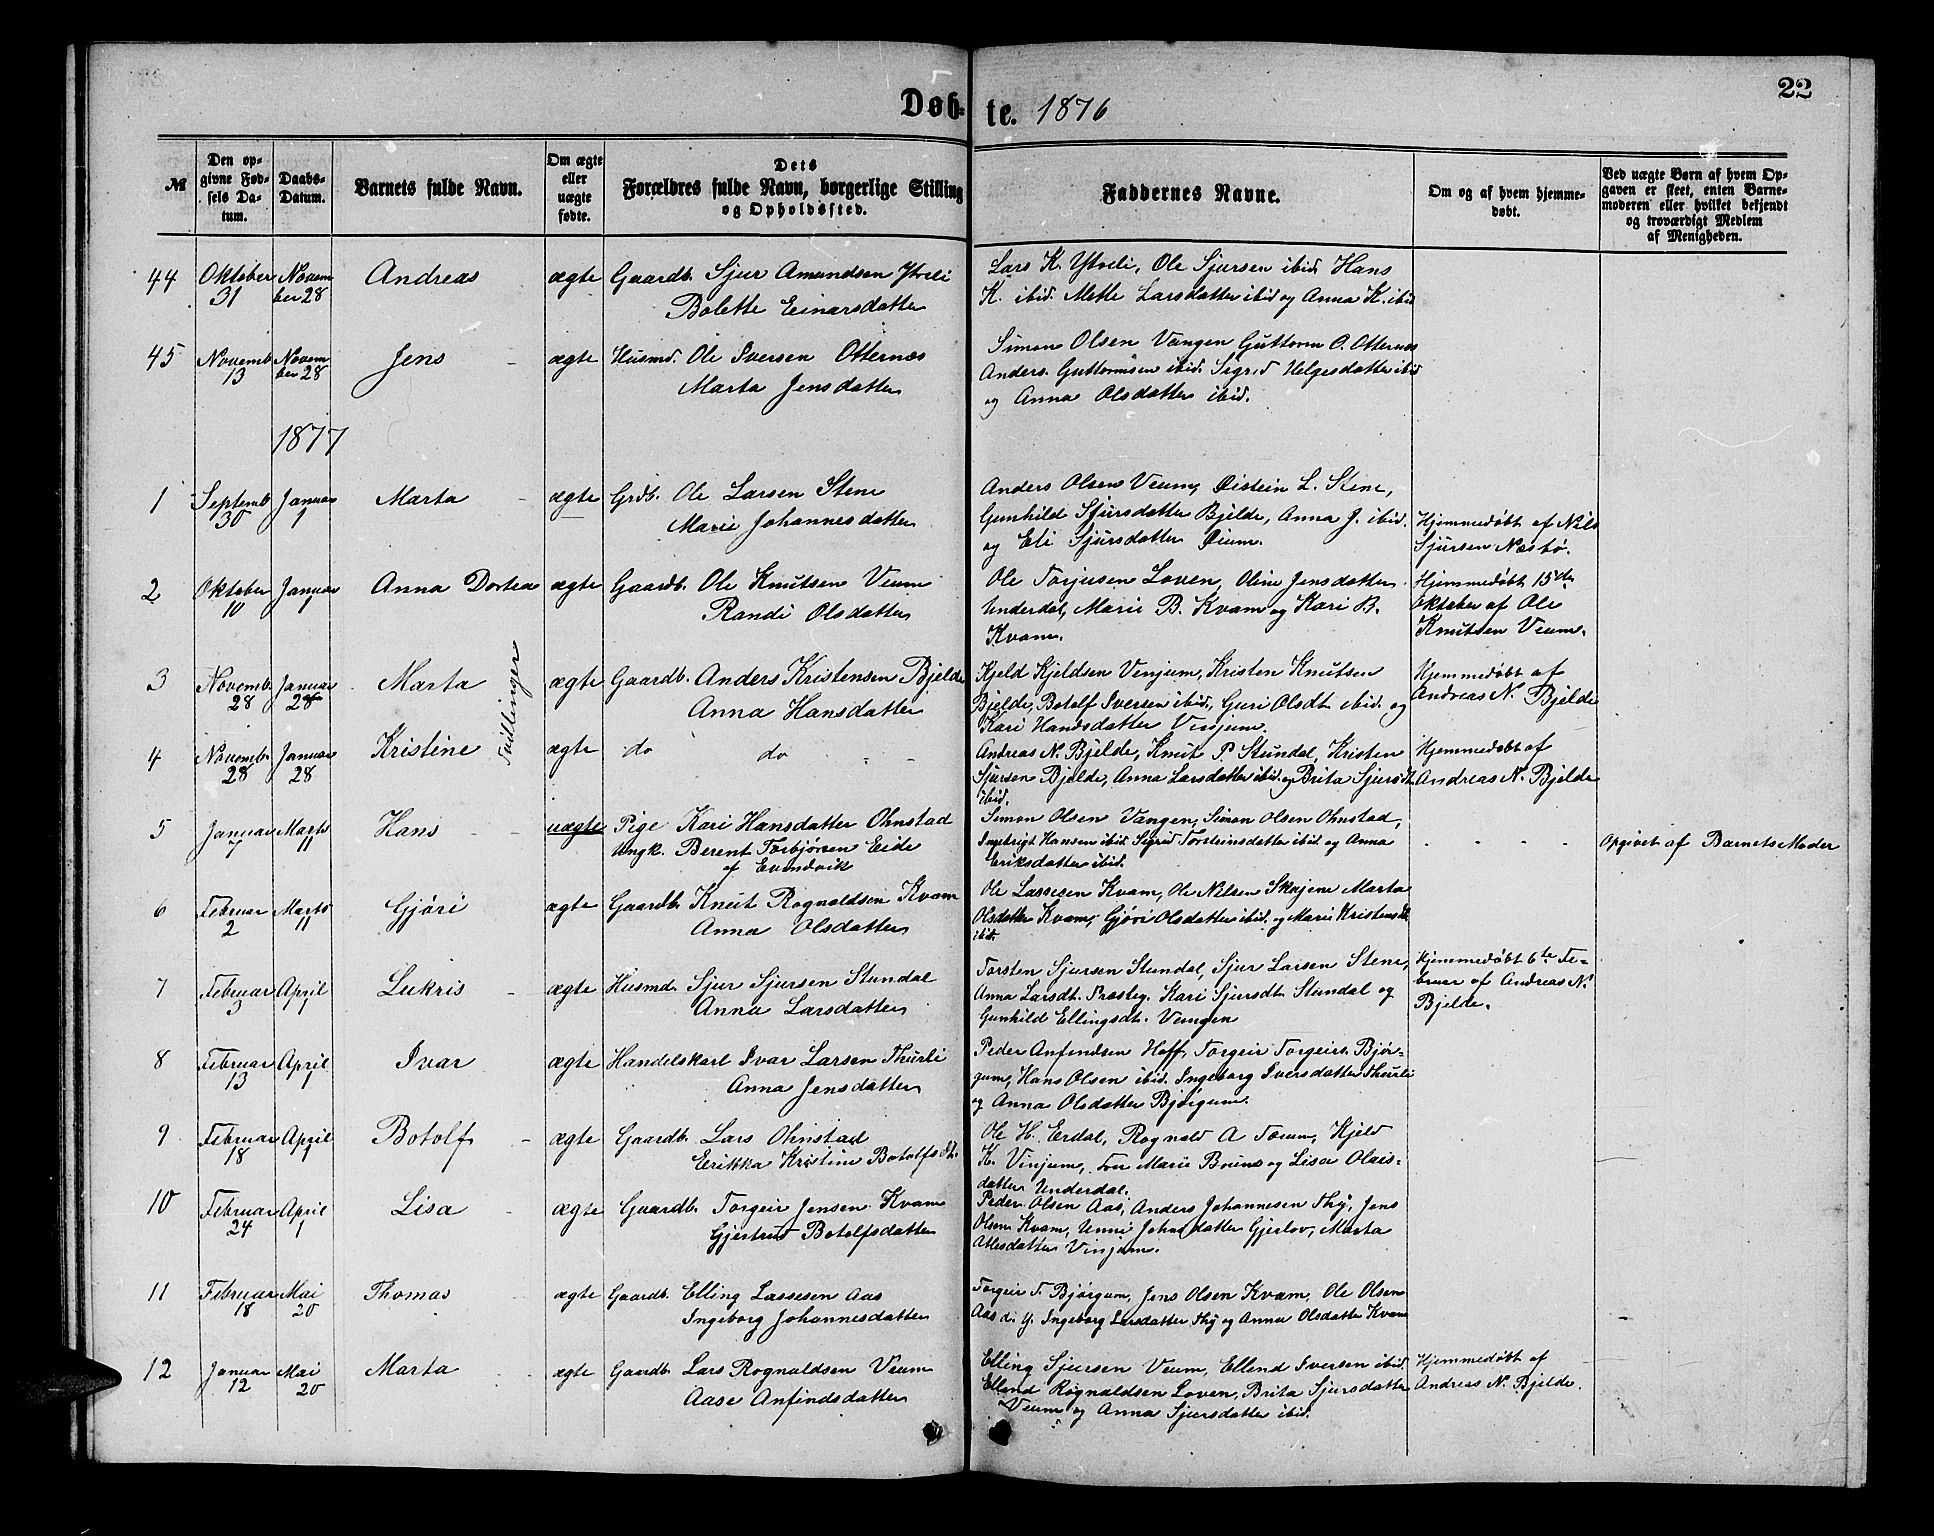 22
Døb- te. 1876
№
Den op-
givne Fød-
sels Da-
tum.
Daabs-
Datum.
Barnets fulde Navn.
Om ægte
eller
uægte
fødte.
Dets
Forældres fulde Navn, borgerlige Stilling
og Opholdssted.
Faddernes Navne.
Om og af hvem hjemme-
døbt.
Ved uægte Børn af hvem Op-
gaven er skeet, enten Barne-
moderen eller hvilket bekjendt
og troværdigt Medlem
af Menigheden.
44 Oktober 31 Novem ber 28 Andreas ægte Gaardb. Sjur Amundsen Ytreli
Bolette Einarsdatter
Lars K. Ytreli, Ole Sjursen ibid. Hans
K. ibid. Mette Larsdatter ibid og Anna K. ibid
45 Novemb. 13 Novem ber 28 Jens ægte Husmd. Ole Iversen Otternæs
Marta Jensdatter
Simon Olsen Vangen Guttorm O. Otternæs
Anders Guttormsen ibid. Sigrid Helgesdatter ibid
og Anna Olsdatter ibid.
1877
1 Septemb. 30 Januar 1 Marta ægte Grdb. Ole Larsen Stene
Marie Johannesdatter
Anders Olsen Veum, Øistein L. Stene,
Gunhild Sjursdatter Bjelde, Anna J. ibid.
og Eli Sjursdatter Øium.
Hjemmedøbt af Nils
Sjursen Næsbø.
2 Oktober 10 Januar 1 Anna Dortea ægte Gaardb. Ole Knutsen Veum
Randi Olsdatter
Ole Torjusen Loven, Oline Jensdatter
Underdal, Marie B. Kvam og Kari B.
Kvam.
Hjemmedøbt 15de
Oktober af Ole
Knutsen Veum.
3 Novemb. 28 Januar 28 Marta Tvillinger ægte Gaardb. Anders Kristensen Bjelde
Anna Hansdatter
Kjeld Kjeldsen Vinjum, Kristen Knutsen
Bjelde, Botolf Iversen ibid., Guri Olsdt ibid. og
Kari Hansdatter Vinjum.
Hjemmedøbt af
Andreas N. Bjelde
4 Novemb. 28 Januar 28 Kristine ægte do do
Andreas N. Bjelde, Knut P. Stundal, Kristen
Sjursen Bjelde, Anna Larsdatter ibid. og Brita Sjursdt.
ibid.
Hjemmedøbt af
Andreas N. Bjelde
5 Januar 7 Marts 11 Hans uægte Pige Kari Hansdatter Ohnstad
Ungk. Berent Torbjørsen Eide
af Evindvik
Simon Olsen Vangen, Simon Olsen Ohnstad,
Ingebrigt Hansen ibid. Sigrid Torsteinsdatter ibid og Anna
Eriksdatter ibid.
Opgivet af Barnets Moder
6 Februar 2 Marts 11 Gjøri ægte Gaardb. Knut Rognaldsen Kvam
Anna Olsdatter
Ole Lassesen Kvam, Ole Nilsen Skajem Marta
Olsdatter Kvam, Gjøri Olsdatter ibid. og Marie Kristensd.
ibid.
7 Februar 3 April 1 Lukris ægte Husmd. Sjur Sjursen Stundal
Anna Larsdatter
Torsten Sjursen Stundal, Sjur Larsen Stene,
Anna Larsdt. Præsteg. Kari Sjursdt. Stundal og
Gunhild Ellingsdt. Vangen
Hjemmedøbt 6te Fe-
bruar af Andreas N.
Bjelde.
8 Februar 13 April 1 Ivar ægte Handelskarl Ivar Larsen Thurli
Anna Jensdatter
Peder Anfindsen Hoff, Torgeir Torgeirs. Bjør-
gum, Hans Olsen ibid. Ingeborg Iversdatter Thurli
og Anna Olsdatter Bjørgum.
9 Februar 18 April 1 Botolf ægte Gaardb. Lars Ohnstad
Erikka Kristine Botolfsdt.
Ole H. Erdal, Rognald A Torum, Kjeld
K. Vinjum, Marie Bruns og Lisa Olais-
datter Underdal.
10 Februar 24 April 1 Lisa ægte Gaardb. Torgeir Jensen Kvam
Gjertrud Botolfsdatter
Peder Olsen Aas, Anders Johannesen Thy, Jens
Olsen Kvam, Unni Johansdatter Gjerlov, Marta
Atlesdatter Vinjum.
11 Februar 18 Mai 20 Thomas ægte Gaardb. Elling Lassesen Aas
Ingeborg Johannesdatter
Torgeir T. Bjørgum, Jens Olsen Kvam, Ole Olsen
Aas d. y. Ingeborg Larsdatter Thy og Anna Olsdatter Kvam
12 Januar 12 Mai 20 Marta ægte Gaardb. Lars Rognaldsen Veum
Aase Anfindsdatter
Elling Sjursen Veum, Ellend Iversen ibid.
Ellend Rognaldsen Loven, Brita Sjursdatter
Veum og Anna Sjursdatter ibid.
Hjemmedøbt af
Andreas N. Bjelde.